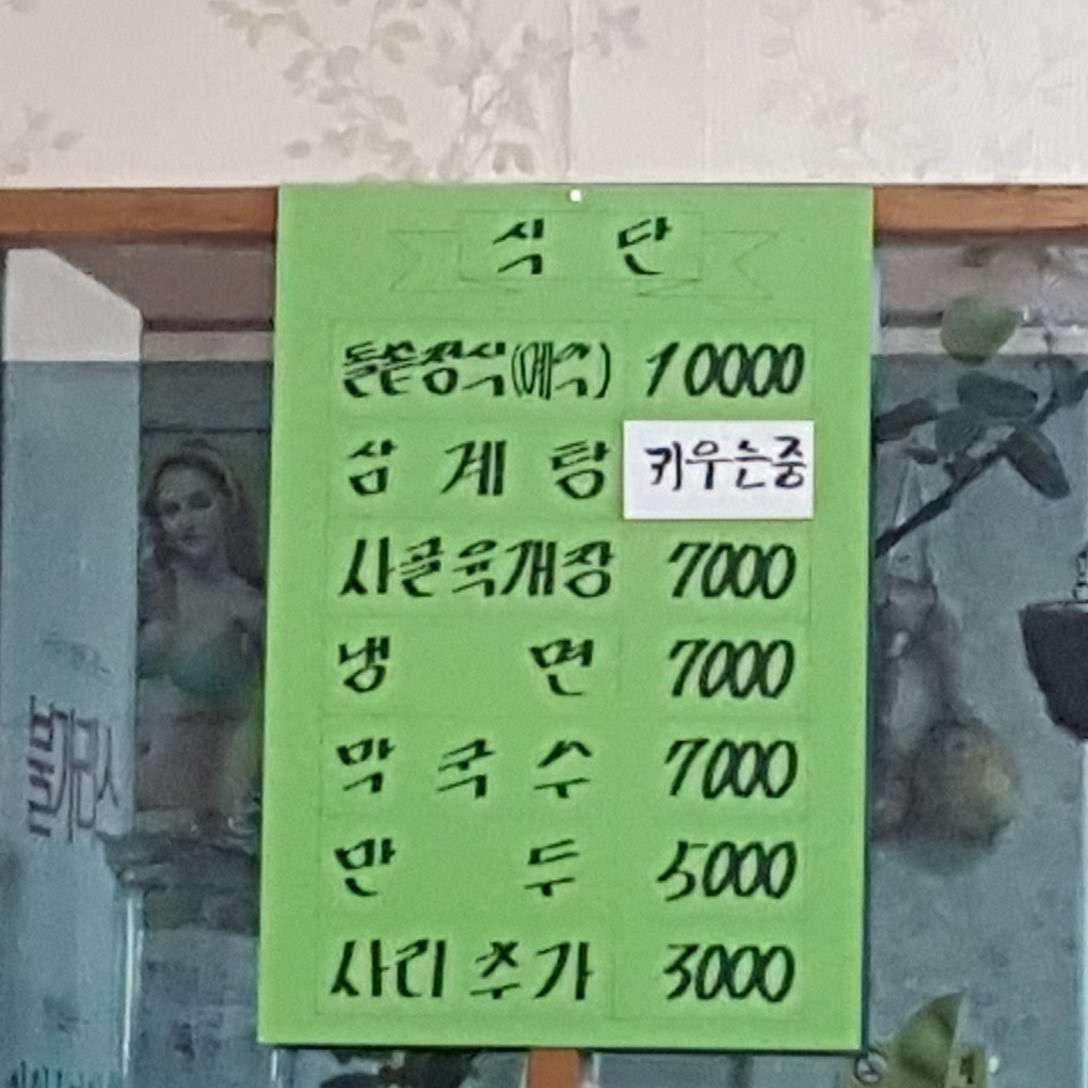 식 단
돌쫀정식(예약) 10000
삼 계 탕 키우는중
사골육개장 7000
냉 면 7000
막 국 수 7000
만 두 5000
사리 추가 3000
불가리스